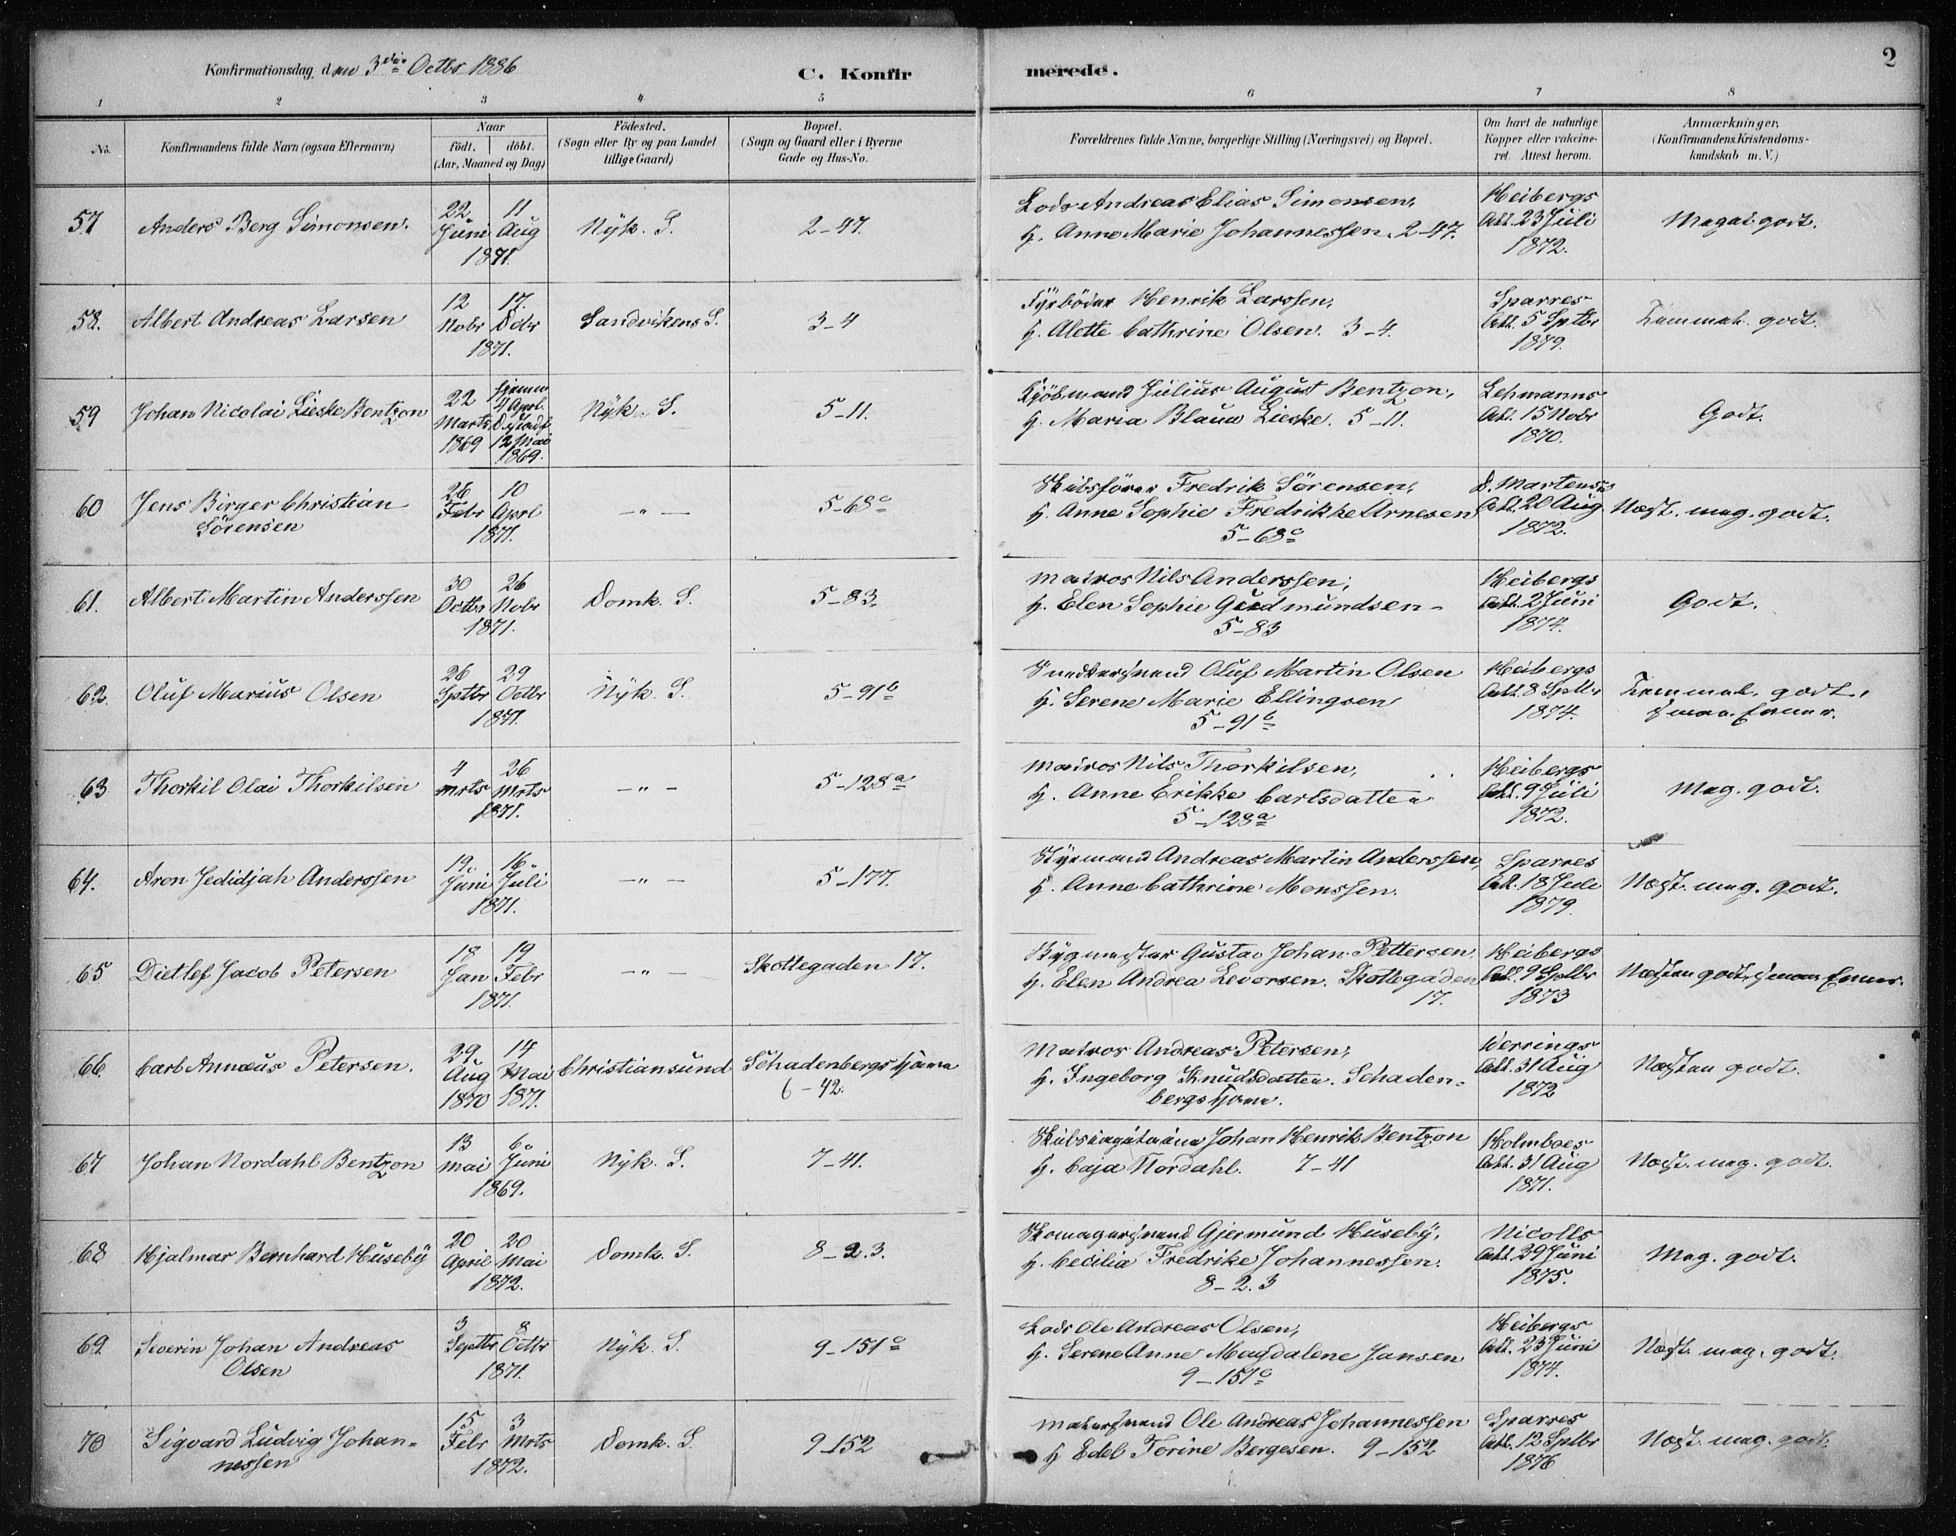 Konfirmationsdag den 3die Octbr 1886
C. Konfirmerede.
2
1 2 3 4 5 6 7 8
No.
Konfirmandens fulde Navn (ogsaa Efternavn)
Naar
født. døbt.
(Aar, Maaned og Dag)
Fødested.
(Sogn eller By og paa Landet
tillige Gaard)
Bopæl.
(Sogn og Gaard eller i Byerne
Gade og Hus-No.
Forældrenes fulde Navne, borgerlige Stilling (Næringsvei) og Bopæl.
Om havt de naturlige
Kopper eller vakcine-
ret. Attest herom.
Anmærkninger,
(Konfirmandens Kristendoms-
kundskab m. V.)
57. Anders Berg Simonsen.
22 Juni 11 Aug
1871.
Nÿk. S.
2-47.
Lods Andreas Elias Simonsen,
H. Anne Marie Johannessen. 2-47.
Heibergs
Att. 23 Juli
1872.
Meget godt.
58. Albert Andreas Larsen
12 Nobr 17. Dcbr
1871.
Sandvikens S.
3-4
Fyrbøder Henrik Larssen,
H. Alette Cathrine Olsen. 3-4.
Sparres
Att. 5 Sptbr
1879.
Temmel. godt.
59 Johan Nicolai Lieske Bentzon
22 Marts 1869
hjemme 4 Aprl.
12 Mai
1869.
Nÿk. S.
5-11.
Kjøbmand Julius August Bentzon,
H. Maria Blauw Lieske. 5-11.
Lehmanns
Att. 15 Nobr
1870.
Godt.
60 Jens Birger Christian
Sørensen
26 Febr 10 Aprl
1871.
-"-
5-68c
Skibsfører Fredrik Sørensen,
H. Anne Sophie Fredrikke Arnesen
5-68c
D. Martens
Att. 20 Aug
1872.
Næst. meg. godt.
61. Albert Martin Anderssen
30 Octbr 26 Nobr
1871.
Domk. S.
5-83.
Matros Nils Anderssen,
H. Elen Sophie Gudmundsen-
5-83
Heibergs
Att. 2 Juni
1874.
Godt.
62. Oluf Marius Olsen
26 Sptbr 29 Octbr
1871.
Nÿk. S.
5-91b
Snedkersvend Oluf Martin Olsen
H. Serene Marie Ellingsen
5-91b
Heibergs
Att. 8 Sptbr
1874.
Temmel. godt,
smaa Evner.
63 Thorkil Olai Thorkilsen
4 Mrts 26 Mrts
1871.
-"-
5-128a
Matros Nils Thorkilsen,
H. Anne Erikke Carlsdatter
5-128a
Heibergs
Att. 9 Juli
1872.
Meg. godt.
64. Aron Jedidjah Anderssen
19 Juni 16 Juli
1871.
-"-
5-177.
Styrmand Andreas Martin Anderssen,
H. Anne Cathrine Monssen.
Sparres
Att. 18 Juli
1879.
Næst. meg. godt.
65 Dietlef Jacob Petersen
18 Jan 19 Febr
1871.
-"-
Skottegaden 17.
Bygmester Gustav Johan Pettersen
H. Elen Andrea Levorsen. Skottegaden
17.
Heibergs
Att. 9 Sptbr
1873
Næsten godt, smaa Evner.
66. Carl Annæus Petersen.
29 Aug 1870 14 Mai 1871.
Christiansund
Schadenbergs hjem
6-42.
Matros Andreas Petersen,
H. Ingeborg Knudsdatter. Schaden-
bergs hjem.
Werrings
Att. 31 Aug
1872
Næsten godt.
67 Johan Nordahl Bentzon
13 Mai 6 Juni
1869.
Nÿk. S.
7-41.
Johan Henrik Bentzon
H. Caja Nordahl. 7-41
Holmboes
Att. 31 Aug
1871.
Næst. meg. godt.
68 Hjalmar Bernhard Huseby
20 April 20 Mai
1872.
Domk. S.
8-2.3.
Skomagersvend Gjermund Huseby,
H. Cecilia Fredrike Johannessen.
8-2.3
Nicolls
Att. 29 Juni
1875.
Meg. godt.
69. Severin Johan Andreas
Olsen
3 Septbr 8 Octbr
1871.
Nÿk. S.
9-151c
Lods Ole Andreas Olsen,
H. Serene Anne Magdalene Jansen
9-151c
Heibergs
Att. 23 Juni
1874.
Næst. meg. godt.
70 Sigvard Ludvig Johan-
nessen
15 Febr 3 Mrts
1872.
Domk. S.
9-152
Malersvend Ole Andreas Johannessen
H Edel Torine Bergesen. 9-152
Sparres
Att. 12 Sptbr
1876
Næst. meg. godt.